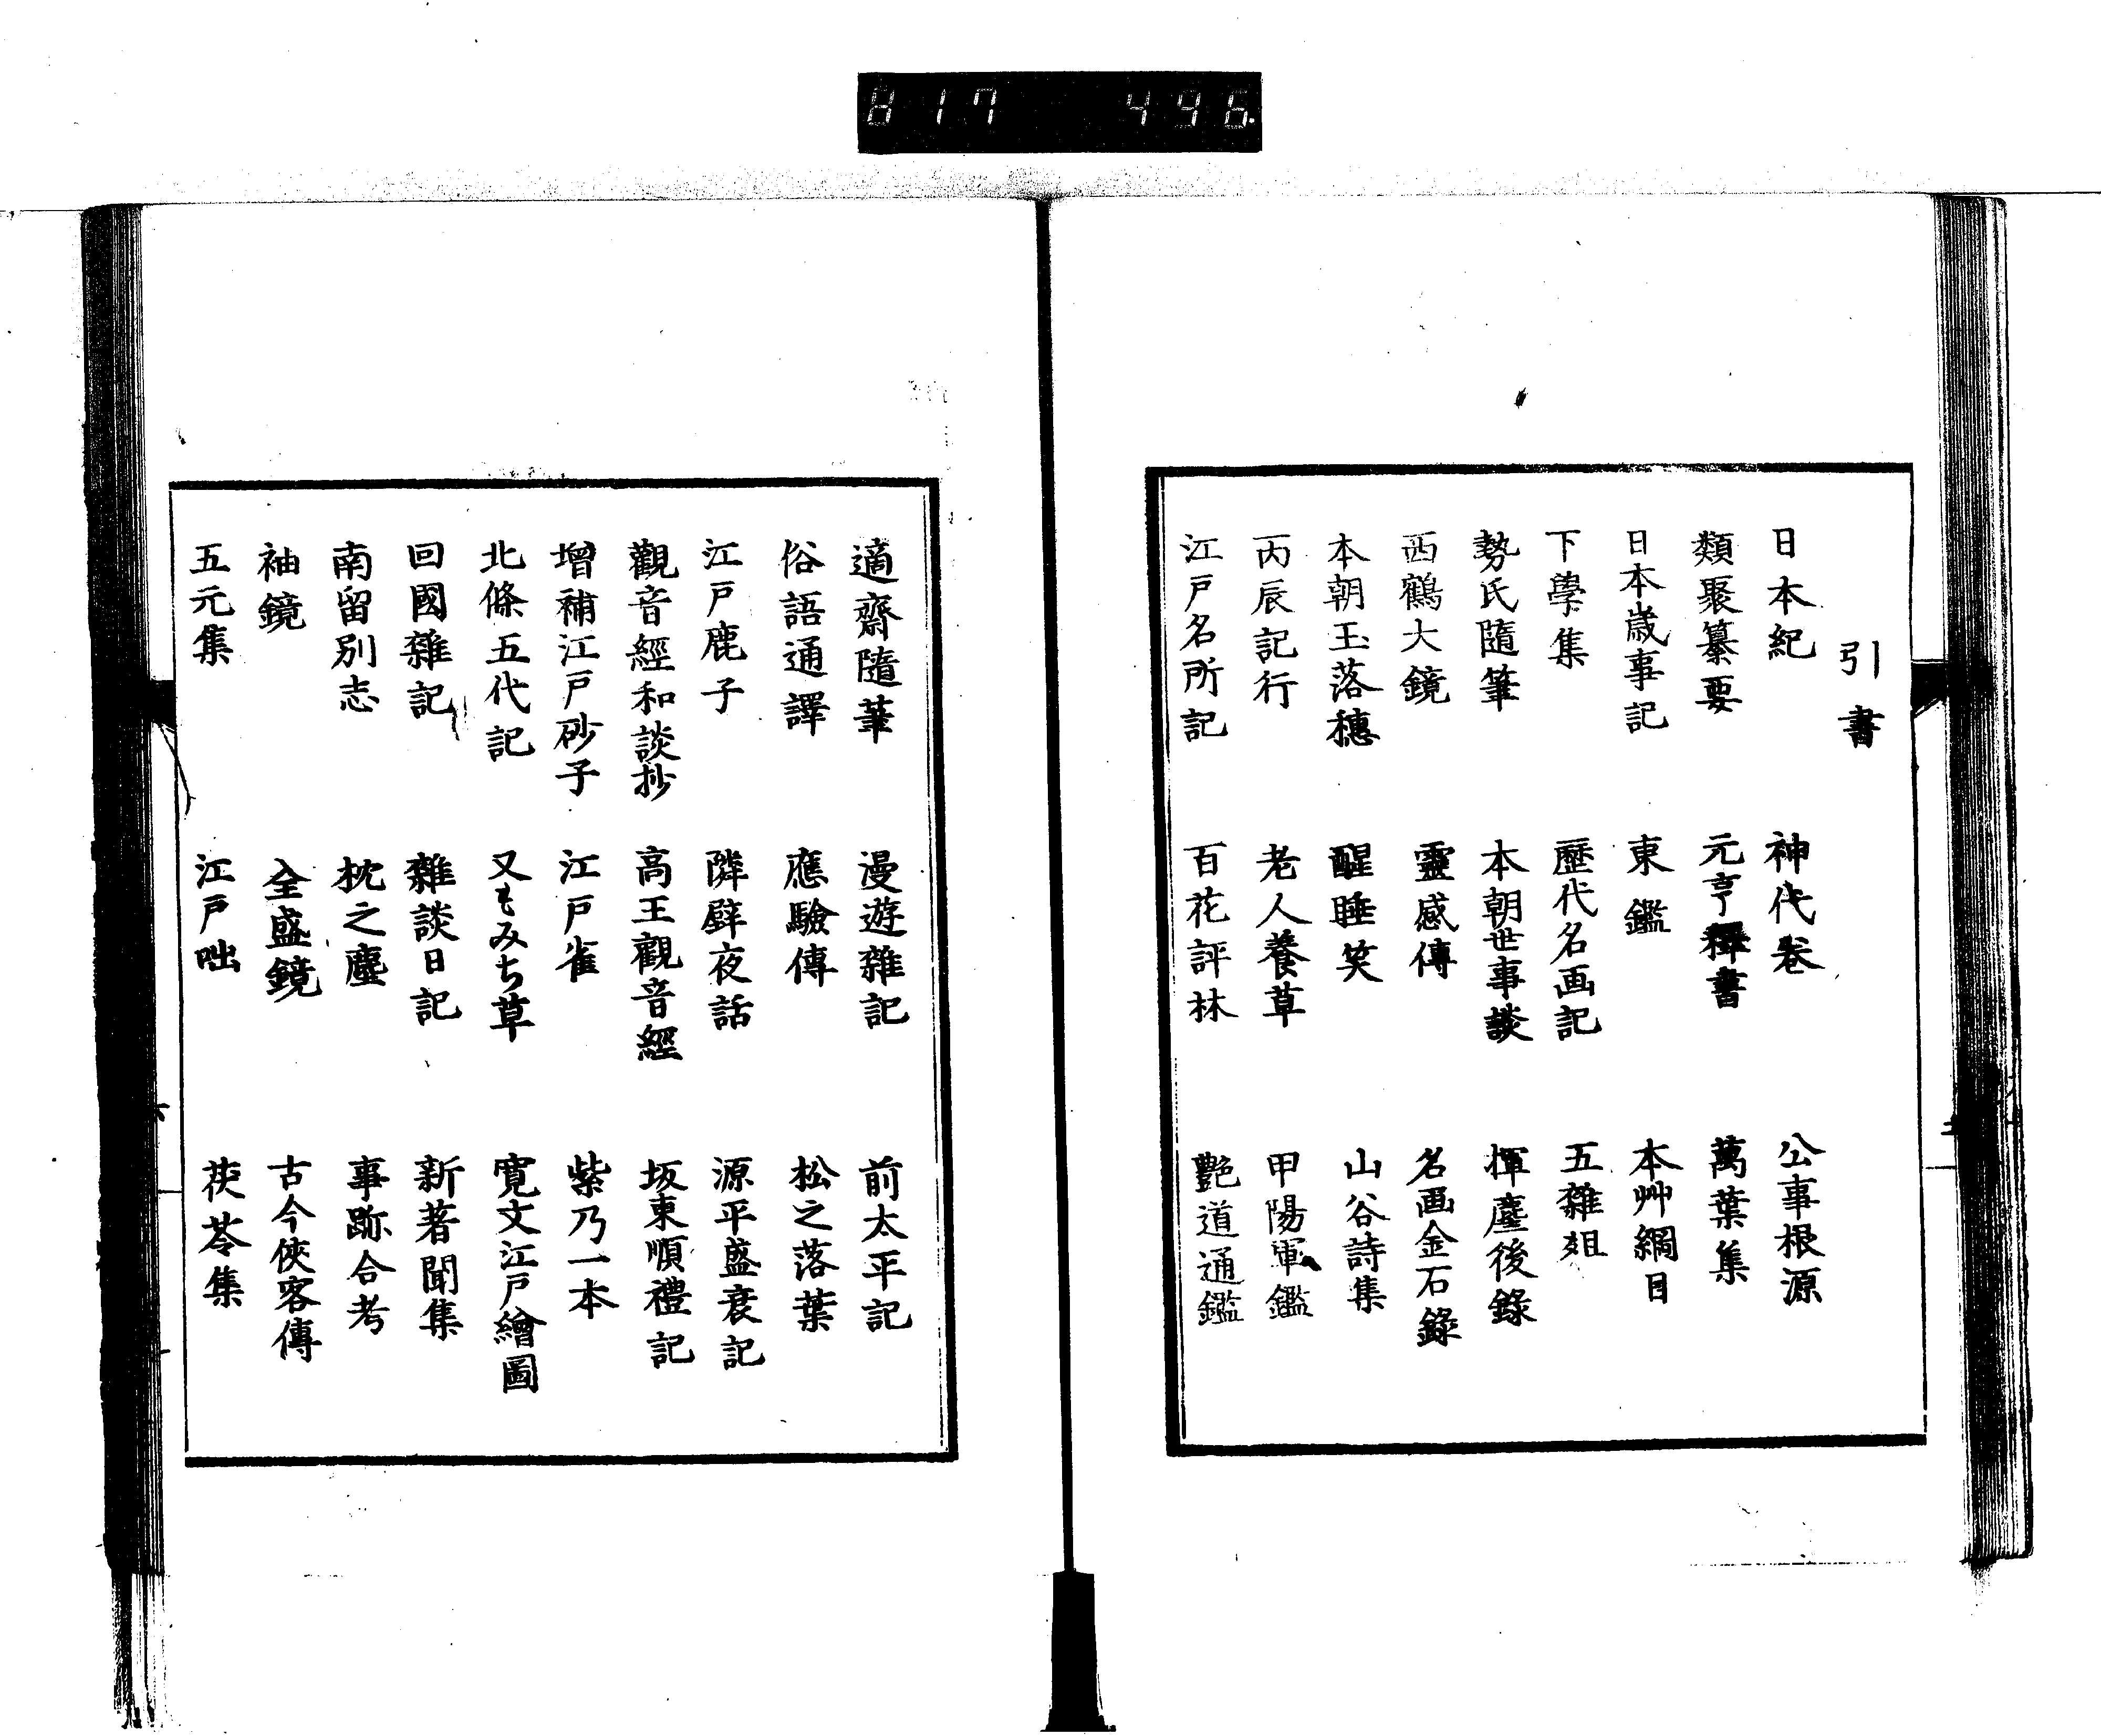 817 496
引書
日本紀 神代卷 公事根源
類聚纂要 元亨釋書 萬葉集
日本歲事記 東鑑 本艸綱目
下學集 歷代名画記 五雜俎
勢氏隨筆 本朝世事談 揮塵後錄
西鶴大鏡 靈感傳 名画金石錄
本朝玉落穗 醒睡笑 山谷詩集
丙辰記行 老人養草 甲陽軍鑑
江戸名所記 百花評林 艷道通鑑
適齋隨筆 漫遊雜記 前太平記
俗語通譯 應驗傳 松之落葉
江戸鹿子 隣壁夜話 源平盛衰記
觀音經和談抄 高王觀音經 坂東順禮記
增補江戸砂子 江戸雀 紫乃一本
北條五代記 又もみち草 寬文江戸繪圖
回國雜記 雜談日記 新著聞集
南留別志 枕之塵 事跡合考
袖鏡 全盛鏡 古今俠客傳
五元集 江戸咄 茯苓集